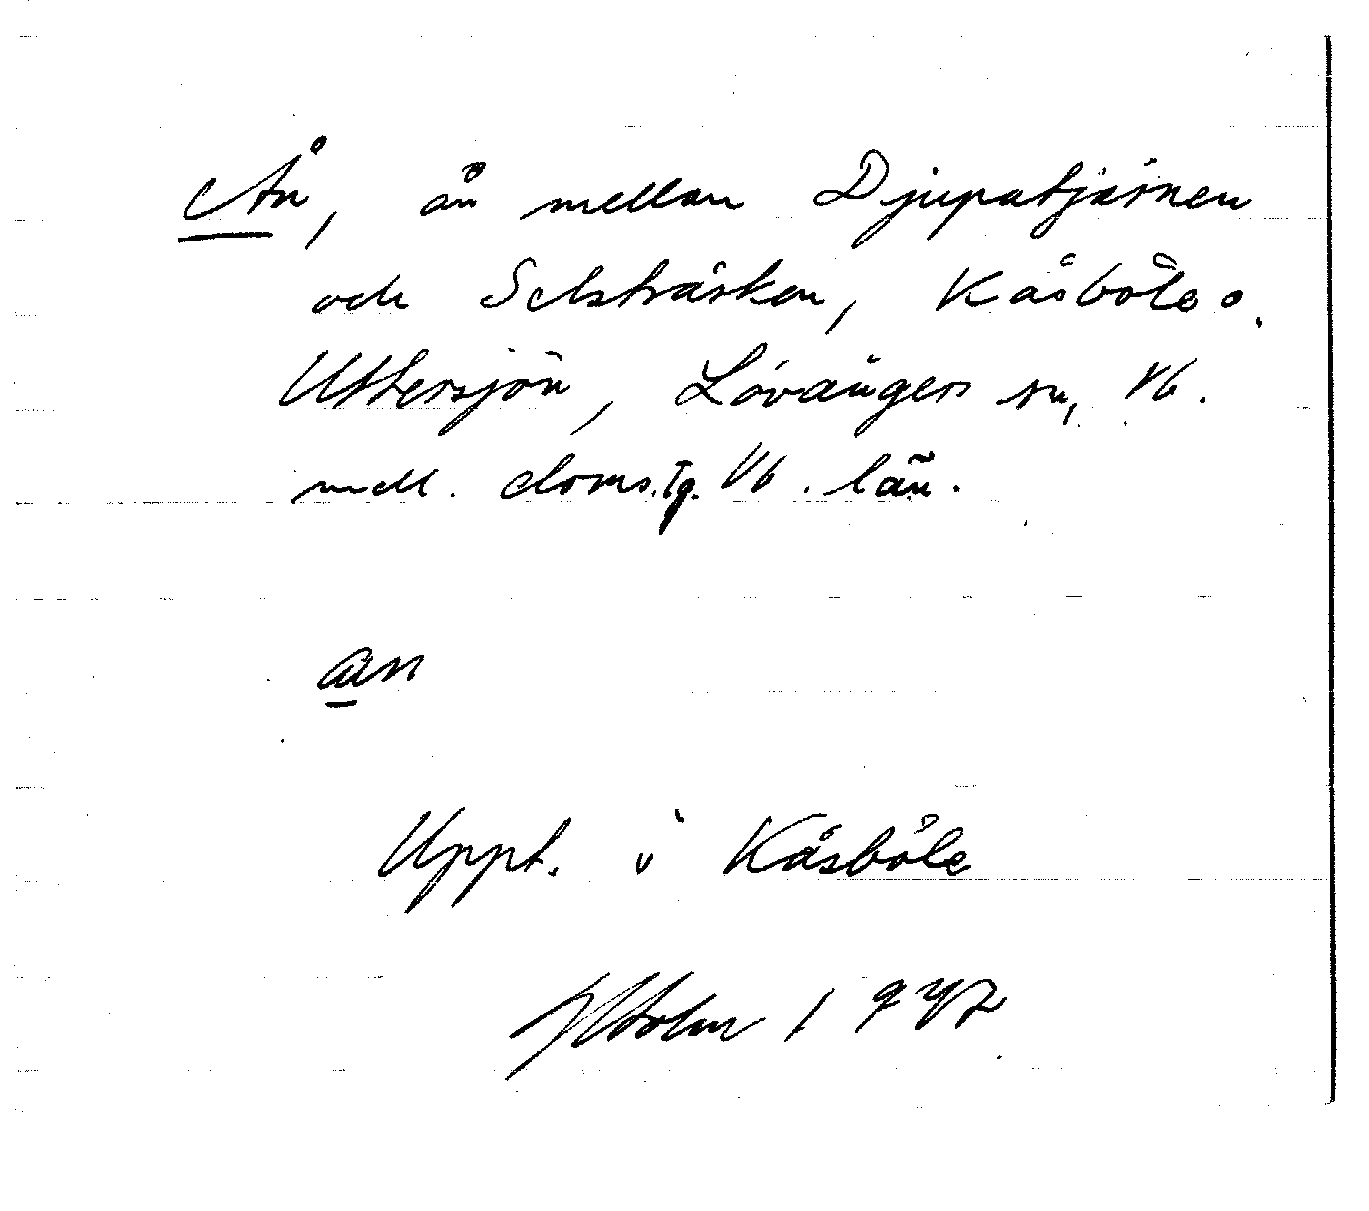 Ån, ån mellan Djupatjärnen
och Selsträsken, Kåsböle o.
Uttersjön, Lövångers sn, Vb.
mell. doms.tg. Vb. län.
an
Uppt. i Kåsböle
Holm 1942